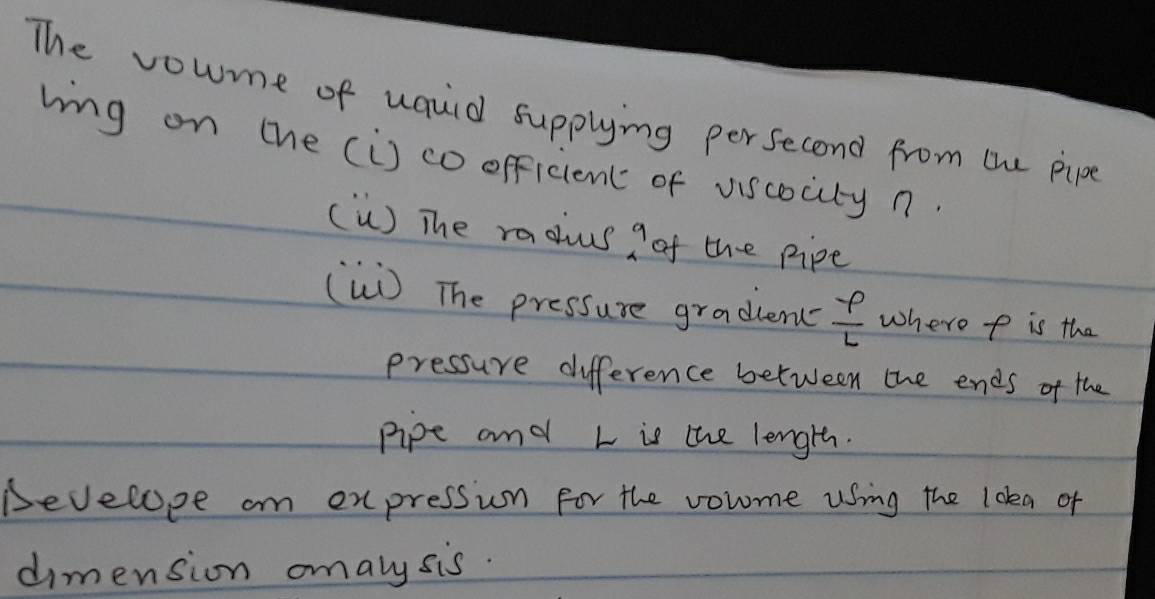 The volume of liquid supplying per second from the pipe
ling on the (i) co officient of viscocity η.
(ii) The radius a of the pipe
(iii) The pressure gradient P/L where P is the
pressure difference between the ends of the
pipe and L is the length.
Develope an expression for the volume using the Idea of
dimension analysis.